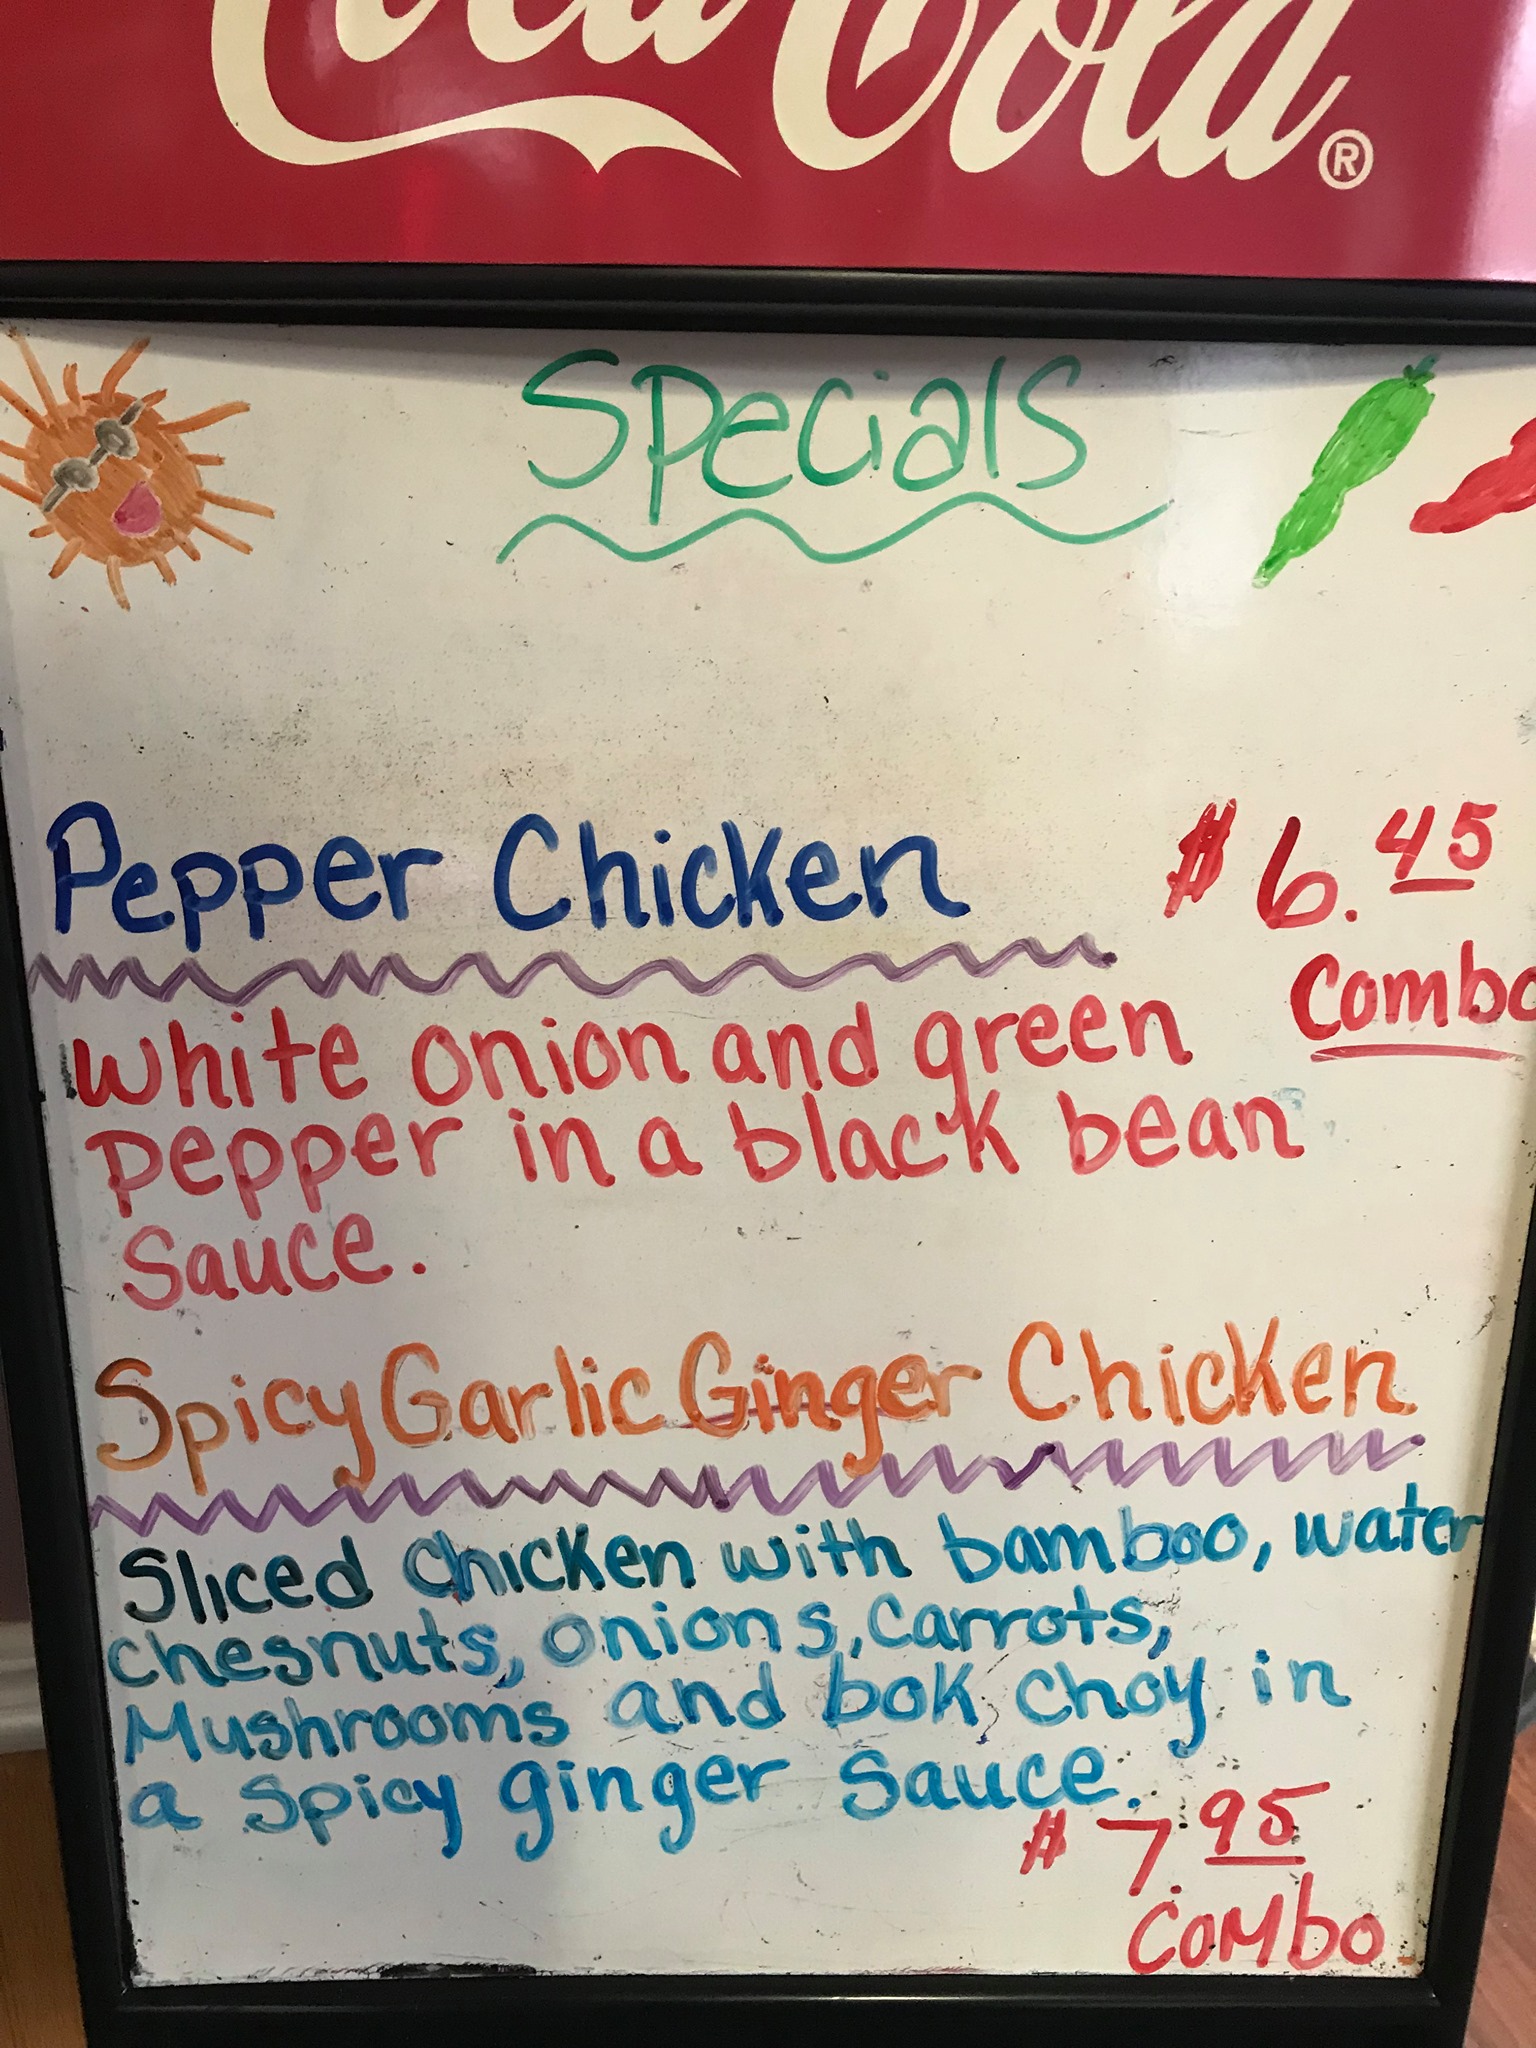 Coca-Cola®
Specials
Pepper Chicken $6.45
Combo
White onion and green
pepper in a black bean
sauce.
Spicy Garlic Ginger Chicken
Sliced chicken with bamboo, water
chesnuts, onions, carrots,
Mushrooms and bok choy in
a spicy ginger sauce.
$7.95
combo